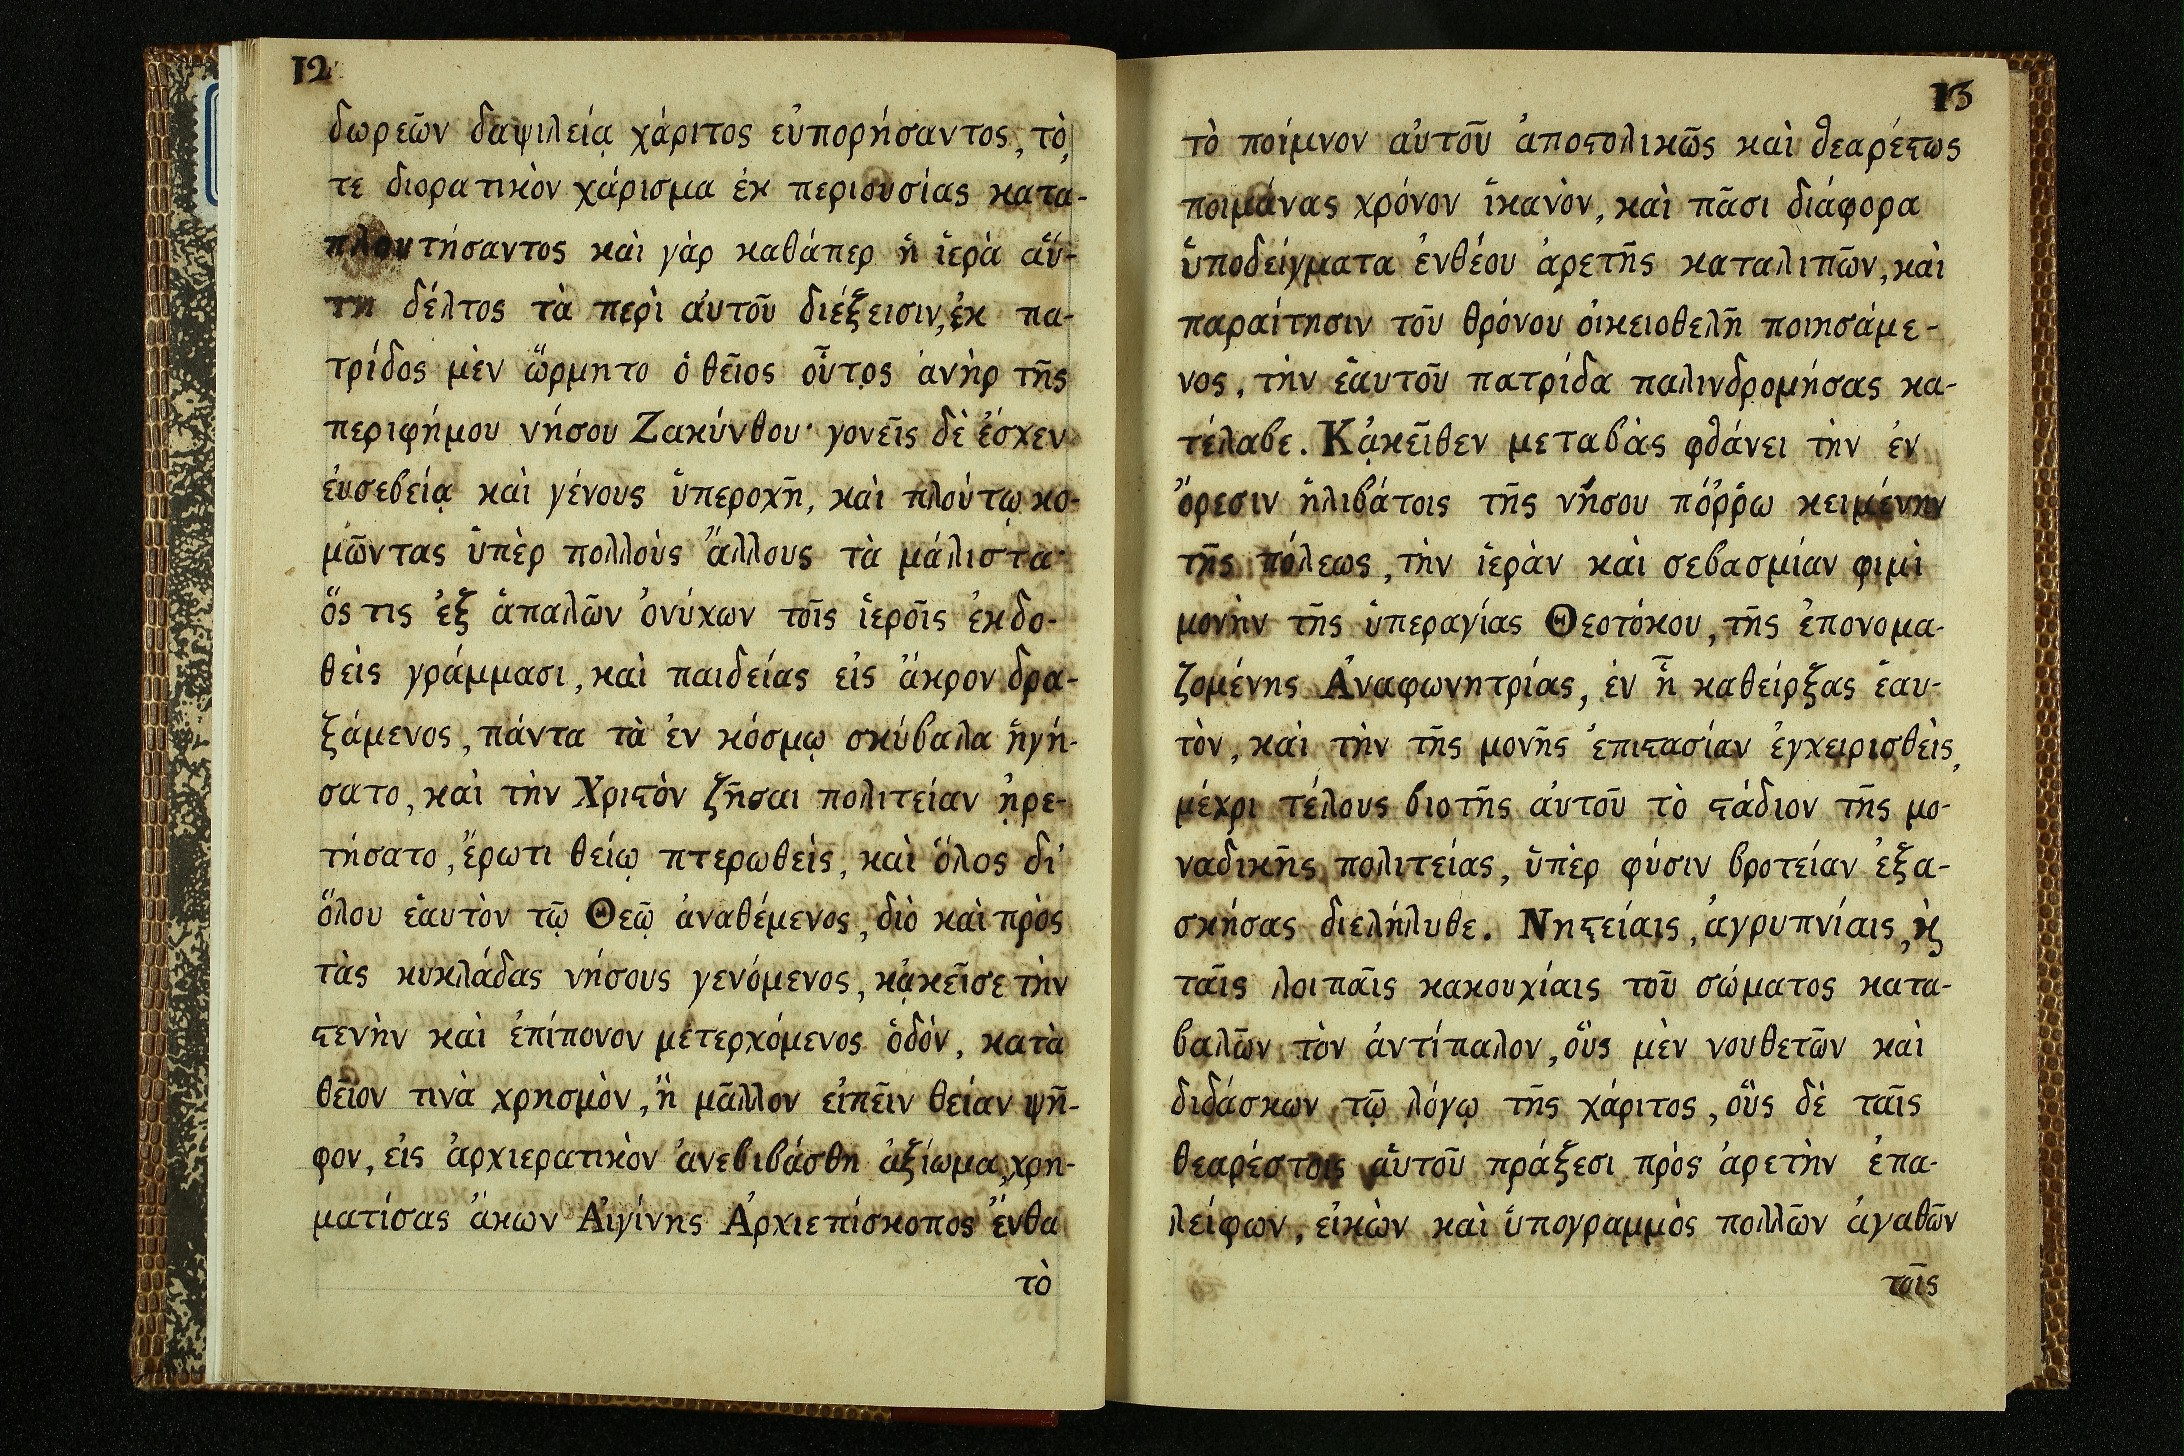 12
δωρεῶν δαψιλείᾳ χάριτος εὐπορήσαντος, τὸ,
τε διορατικὸν χάρισμα ἐκ περιουσίας κατα-
πλουτήσαντος καὶ γὰρ καθάπερ ἡ ἱερὰ αὕ-
τη δέλτος τὰ περὶ αὐτοῦ διέξεισιν, ἐκ πα-
τρίδος μὲν ὥρμητο ὁ θεῖος οὗτος ἀνὴρ τῆς
περιφήμου νήσου Ζακύνθου· γονεῖς δὲ ἔσχεν
εὐσεβείᾳ καὶ γένους ὑπεροχῇ, καὶ πλούτῳ κο-
μῶντας ὑπὲρ πολλοὺς ἄλλους τὰ μάλιστα·
ὅς τις ἐξ ἁπαλῶν ὀνύχων τοῖς ἱεροῖς ἐκδο-
θεὶς γράμμασι, καὶ παιδείας εἰς ἄκρον δρα-
ξάμενος, πάντα τὰ ἐν κόσμῳ σκύβαλα ἡγή-
σατο, καὶ τὴν Χριϛὸν ζῆσαι πολιτείαν ᾑρε-
τήσατο, ἔρωτι θείῳ πτερωθεὶς, καὶ ὅλος δι'
ὅλου ἑαυτὸν τῷ Θεῷ ἀναθέμενος, διὸ καὶ πρὸς
τὰς κυκλάδας νήσους γενόμενος, κᾀκεῖσε τὴν
ϛενὴν καὶ ἐπίπονον μετερχόμενος ὁδόν, κατὰ
θεῖον τινὰ χρησμὸν, ἢ μᾶλλον εἰπεῖν θείαν ψῆ-
φον, εἰς ἀρχιερατικὸν ἀνεβιβάσθη ἀξίωμα, χρη-
ματίσας ἄκων Αἰγίνης Ἀρχιεπίσκοπος ἔνθα
τὸ
13
τὸ ποίμνον αὐτοῦ ἀποϛολικῶς καὶ θεαρέϛως
ποιμάνας χρόνον ἱκανὸν, καὶ πᾶσι διάφορα
ὑποδείγματα ἐνθέου ἀρετῆς καταλιπῶν, καὶ
παραίτησιν τοῦ θρόνου οἰκειοθελῆ ποιησάμε-
νος, τὴν ἑαυτοῦ πατρίδα παλινδρομήσας κα-
τέλαβε. Κᾀκεῖθεν μεταβὰς φθάνει τὴν ἐν
ὄρεσιν ἠλιβάτοις τῆς νήσου πόῤῥω κειμένην
τῆς πόλεως, τὴν ἱερὰν καὶ σεβασμίαν φιμὶ
μονὴν τῆς ὑπεραγίας Θεοτόκου, τῆς ἐπονομα-
ζομένης Ἀναφωνητρίας, ἐν ᾗ καθείρξας ἑαυ-
τὸν, καὶ τὴν τῆς μονῆς ἐπιϛασίαν ἐγχειρισθεὶς,
μέχρι τέλους βιοτῆς αὐτοῦ τὸ ϛάδιον τῆς μο-
ναδικῆς πολιτείας, ὑπὲρ φύσιν βροτείαν ἐξα-
σκήσας διελήλυθε. Νηϛείαις, ἀγρυπνίαις, ϗ
ταῖς λοιπαῖς κακουχίαις τοῦ σώματος κατα-
βαλῶν τὸν ἀντίπαλον, οὓς μὲν νουθετῶν καὶ
διδάσκων τῷ λόγῳ τῆς χάριτος, οὓς δὲ ταῖς
θεαρέστοις αὑτοῦ πράξεσι πρὸς ἀρετὴν ἐπα-
λείφων, εἰκὼν καὶ ὑπογραμμὸς πολλῶν ἀγαθῶν
τοῖς